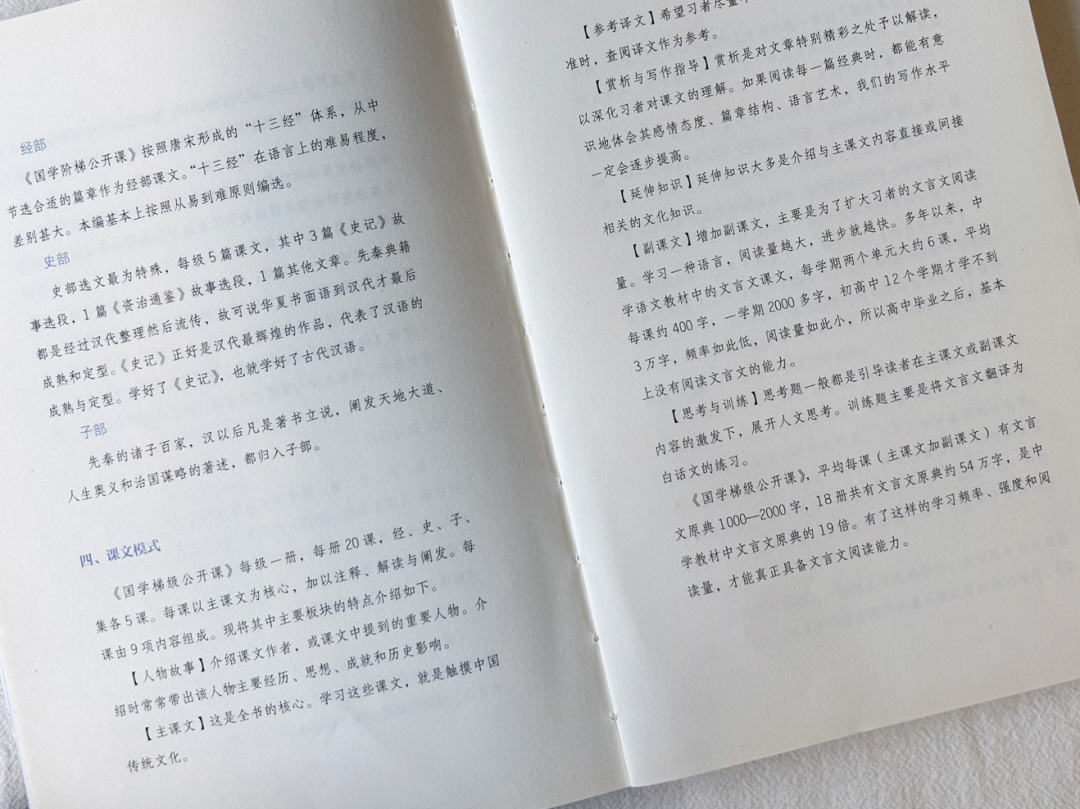 经部
《国学阶梯公开课》按照唐宋形成的“十三经”体系，从中
节选合适的篇章作为经部课文。“十三经”在语言上的难易程度，
差别甚大。本编基本上按照从易到难原则编选。
史部
史部选文最为特殊，每级5篇课文，其中3篇《史记》故
事选段，1篇《资治通鉴》故事选段，1篇其他文章。先秦典籍
都是经过汉代整理然后流传，故可说华夏书面语到汉代才最后
成熟和定型。《史记》正好是汉代最辉煌的作品，代表了汉语的
成熟与定型。学好了《史记》，也就学好了古代汉语。
子部
先秦的诸子百家，汉以后凡是著书立说，阐发天地大道、
人生奥义和治国谋略的著述，都归入子部。
四、课文模式
《国学梯级公开课》每级一册，每册20课，经、史、子、
集各5课。每课以主课文为核心，加以注释、解读与阐发。每
课由9项内容组成。现将其中主要板块的特点介绍如下。
【人物故事】介绍课文作者，或课文中提到的重要人物。介
绍时常常带出该人物主要经历、思想、成就和历史影响。
【主课文】这是全书的核心。学习这些课文，就是触摸中国
传统文化。
【参考译文】希望习者尽量不
准时，查阅译文作为参考。
【赏析与写作指导】赏析是对文章特别精彩之处予以解读，
以深化习者对课文的理解。如果阅读每一篇经典时，都能有意
识地体会其感情态度、篇章结构、语言艺术，我们的写作水平
一定会逐步提高。
【延伸知识】延伸知识大多是介绍与主课文内容直接或间接
相关的文化知识。
【副课文】增加副课文，主要是为了扩大习者的文言文阅读
量。学习一种语言，阅读量越大，进步就越快。多年以来，中
学语文教材中的文言文课文，每学期两个单元大约6课，平均
每课约400字，一学期2000多字，初高中12个学期才学不到
3万字，频率如此低，阅读量如此小，所以高中毕业之后，基本
上没有阅读文言文的能力。
【思考与训练】思考题一般都是引导读者在主课文或副课文
内容的激发下，展开人文思考。训练题主要是将文言文翻译为
白话文的练习。
《国学梯级公开课》，平均每课（主课文加副课文）有文言
文原典1000—2000字，18册共有文言文原典约54万字，是中
学教材中文言文原典的19倍。有了这样的学习频率、强度和阅
读量，才能真正具备文言文阅读能力。